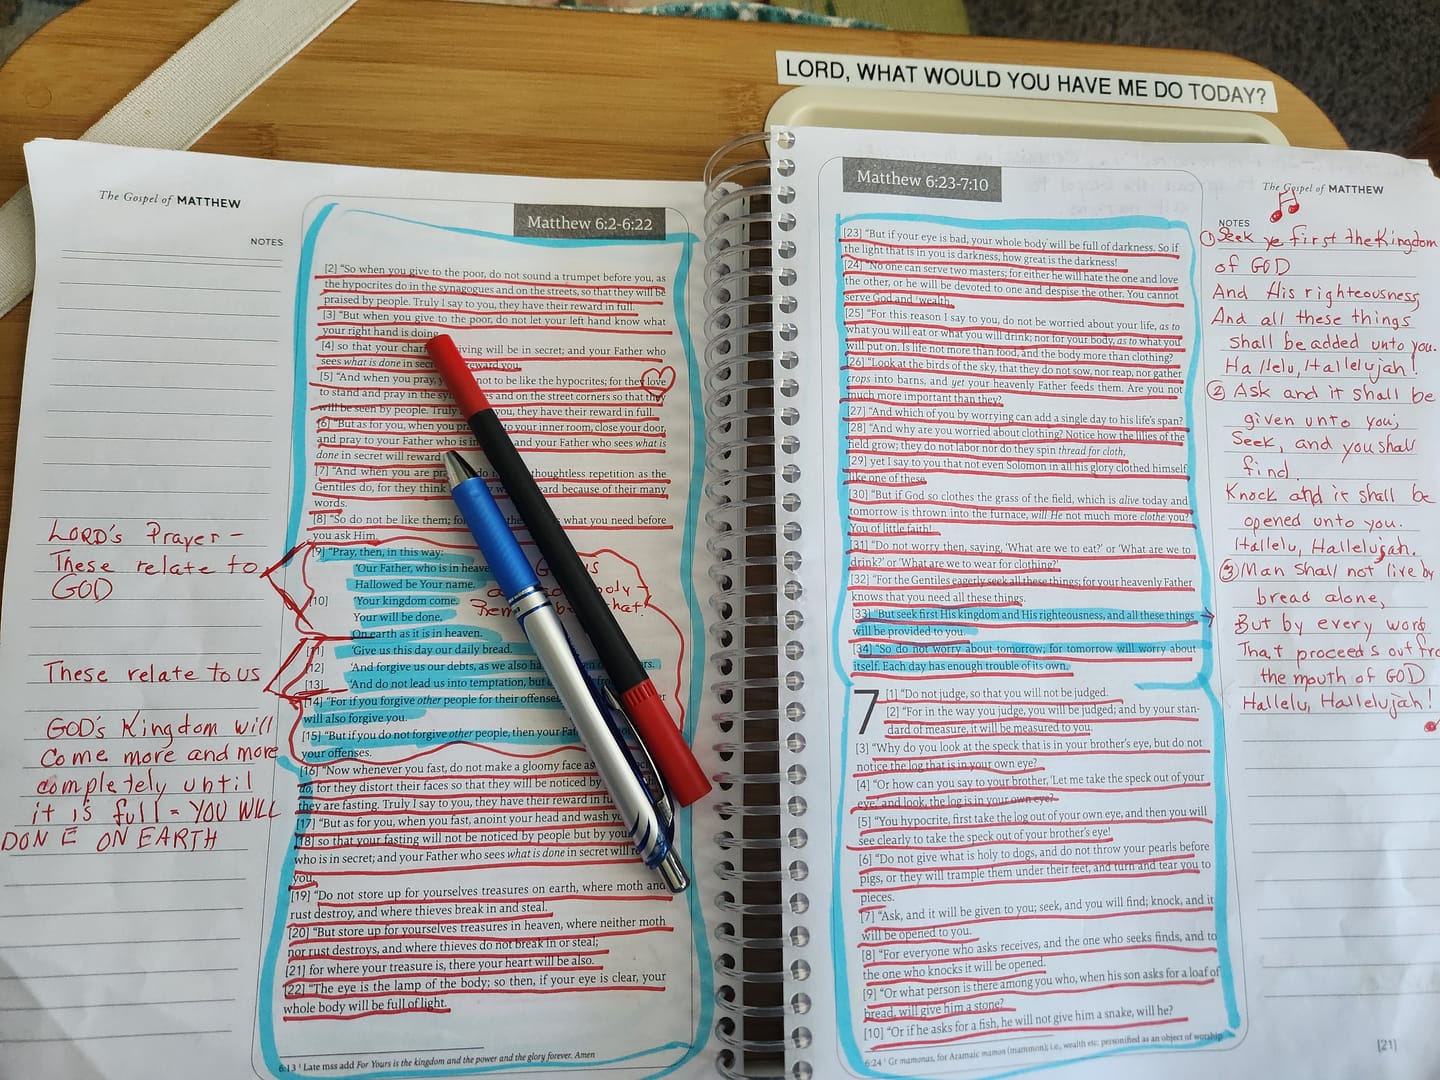 LORD, WHAT WOULD YOU HAVE ME DO TODAY?
The Gospel of MATTHEW
NOTES
Matthew 6:2-6:22
[2] “So when you give to the poor, do not sound a trumpet before you, as
the hypocrites do in the synagogues and on the streets, so that they will be
praised by people. Truly I say to you, they have their reward in full.
[3] “But when you give to the poor, do not let your left hand know what
your right hand is doing
[4] so that your giving will be in secret; and your Father who
sees what is done in reward you.
[5] “And when you pray, not to be like the hypocrites; for they love
to stand and pray in the and on the street corners so that they
will be seen by people. Truly you, they have their reward in full.
[6] “But as for you, when you to your inner room, close your door,
and pray to your Father who is in and your Father who sees what is
done in secret will reward
[7] “And when you are thoughtless repetition as the
Gentiles do, for they think because of their many
words.
[8] “So do not be like them; what you need before
you ask Him.
[9] “Pray, then, in this way:
‘Our Father, who is in
Hallowed be Your name.
[10] ‘Your kingdom come.
Your will be done,
On earth as it is in heaven.
[11] ‘Give us this day our daily bread.
[12] ‘And forgive us our debts, as we also
[13] ‘And do not lead us into temptation, but
[14] “For if you forgive other people for their
will also forgive you.
[15] “But if you do not forgive other people, then your
your offenses.
[16] “Now whenever you fast, do not make a gloomy face
do, for they distort their faces so that they will be noticed by
they are fasting. Truly I say to you, they have their reward in
[17] “But as for you, when you fast, anoint your head and wash
[18] so that your fasting will not be noticed by people but by
who is in secret; and your Father who sees what is done in secret will
you.
[19] “Do not store up for yourselves treasures on earth, where moth and
rust destroy, and where thieves break in and steal.
[20] “But store up for yourselves treasures in heaven, where neither moth
nor rust destroys, and where thieves do not break in or steal;
[21] for where your treasure is, there your heart will be also.
[22] “The eye is the lamp of the body; so then, if your eye is clear, your
whole body will be full of light.
6:13 ¹ Late mss add For Yours is the kingdom and the power and the glory forever. Amen
LORD's Prayer -
These relate to
GOD
These relate to us
GOD's Kingdom will
Come more and more
completely until
it is full = YOU WILL
DONE ON EARTH
Matthew 6:23-7:10
[23] “But if your eye is bad, your whole body will be full of darkness. So if
the light that is in you is darkness, how great is the darkness!
[24] “No one can serve two masters; for either he will hate the one and love
the other, or he will be devoted to one and despise the other. You cannot
serve God and ¹wealth.
[25] “For this reason I say to you, do not be worried about your life, as to
what you will eat or what you will drink; nor for your body, as to what you
will put on. Is life not more than food, and the body more than clothing?
[26] “Look at the birds of the sky, that they do not sow, nor reap, nor gather
crops into barns, and yet your heavenly Father feeds them. Are you not
much more important than they?
[27] “And which of you by worrying can add a single day to his life's span?
[28] “And why are you worried about clothing? Notice how the lilies of the
field grow; they do not labor nor do they spin thread for cloth,
[29] yet I say to you that not even Solomon in all his glory clothed himself
like one of these.
[30] “But if God so clothes the grass of the field, which is alive today and
tomorrow is thrown into the furnace, will He not much more clothe you?
You of little faith!
[31] “Do not worry then, saying, ‘What are we to eat?’ or ‘What are we to
drink?’ or ‘What are we to wear for clothing?’
[32] “For the Gentiles eagerly seek all these things; for your heavenly Father
knows that you need all these things.
[33] “But seek first His kingdom and His righteousness, and all these things
will be provided to you.
[34] “So do not worry about tomorrow; for tomorrow will worry about
itself. Each day has enough trouble of its own.
7 [1] “Do not judge, so that you will not be judged.
[2] “For in the way you judge, you will be judged; and by your stan-
dard of measure, it will be measured to you.
[3] “Why do you look at the speck that is in your brother's eye, but do not
notice the log that is in your own eye?
[4] “Or how can you say to your brother, ‘Let me take the speck out of your
eye,’ and look, the log is in your own eye?
[5] “You hypocrite, first take the log out of your own eye, and then you will
see clearly to take the speck out of your brother's eye!
[6] “Do not give what is holy to dogs, and do not throw your pearls before
pigs, or they will trample them under their feet, and turn and tear you to
pieces.
[7] “Ask, and it will be given to you; seek, and you will find; knock, and it
will be opened to you.
[8] “For everyone who asks receives, and the one who seeks finds, and to
the one who knocks it will be opened.
[9] “Or what person is there among you who, when his son asks for a loaf of
bread, will give him a stone?
[10] “Or if he asks for a fish, he will not give him a snake, will he?
6:24 ¹ Gr mamonas, for Aramaic mamon (mammon); i.e., wealth etc. personified as an object of worship
The Gospel of MATTHEW
NOTES
① Seek ye first the Kingdom
of GOD
And His righteousness
And all these things
shall be added unto you.
Hallelu, Hallelujah!
② Ask and it shall be
given unto you;
Seek, and you shall
find.
Knock and it shall be
opened unto you.
Hallelu, Hallelujah.
③ Man shall not live by
bread alone,
But by every word
That proceeds out
the mouth of GOD
Hallelu, Hallelujah!
[21]